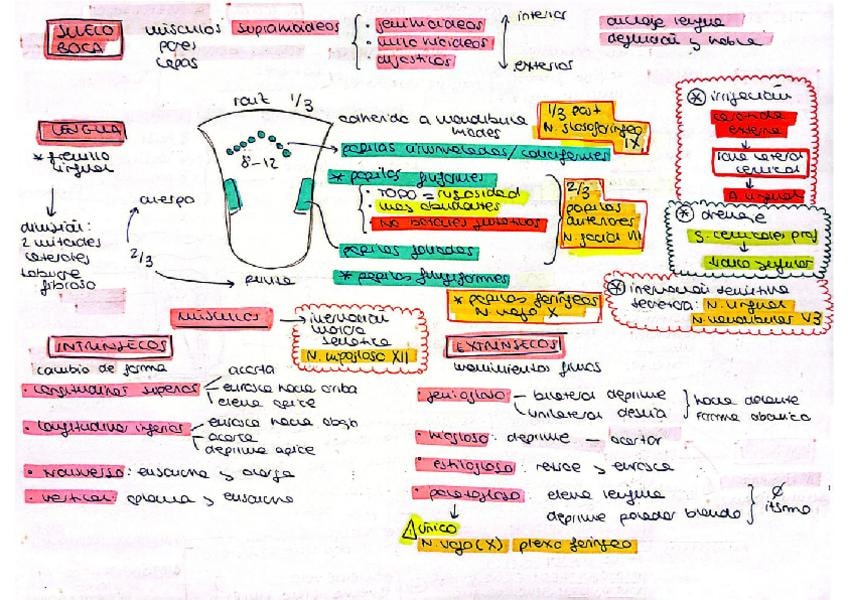 SUELO BOCA
músculos suprahioideos
pares
capas
· genihioideos
· milo hioideos
· digástricos
interior
exterior
anclaje lengua
deglución y habla
LENGUA
* frenillo lingual
división:
2 mitades
laterales
tabique
fibroso
raíz 1/3
8-12
cuerpo
2/3
punta
adherido a mandíbula
hioides
papilas circunvaladas/caliciformes
1/3 post
N. glosofaríngeo IX
* papilas filiformes
· TOPO = rugosidad
· más abundantes
· No botones gustativos
papilas foliadas
* papilas fungiformes
2/3
papilas
anteriores
N. facial VII
* papilas faríngeas
N. vago X
* irrigación
carótida
externa
rama lateral
cervical
A. lingual
* drenaje
g. cervicales prof
tronco yugular
* inervación sensitiva
N. lingual
N. mandibular V3
músculos
inervación
motora
N. hipogloso XII
INTRÍNSECOS
cambio de forma
· longitudinal superior
acorta
enrosca hacia arriba
eleva ápice
· longitudinal inferior
enrosca hacia abajo
acorta
deprime ápice
· transverso: ensancha y alarga
· vertical: aplana y ensancha
EXTRÍNSECOS
movimientos finos
· geniogloso
bilateral deprime
unilateral desvía
hacia delante
forma abanico
· hiogloso: deprime — acortar
· estilogloso: retrae y enrosca
· palatogloso: eleva lengua
deprime paladar blando
Ø istmo
único
N. vago (X) plexo faríngeo